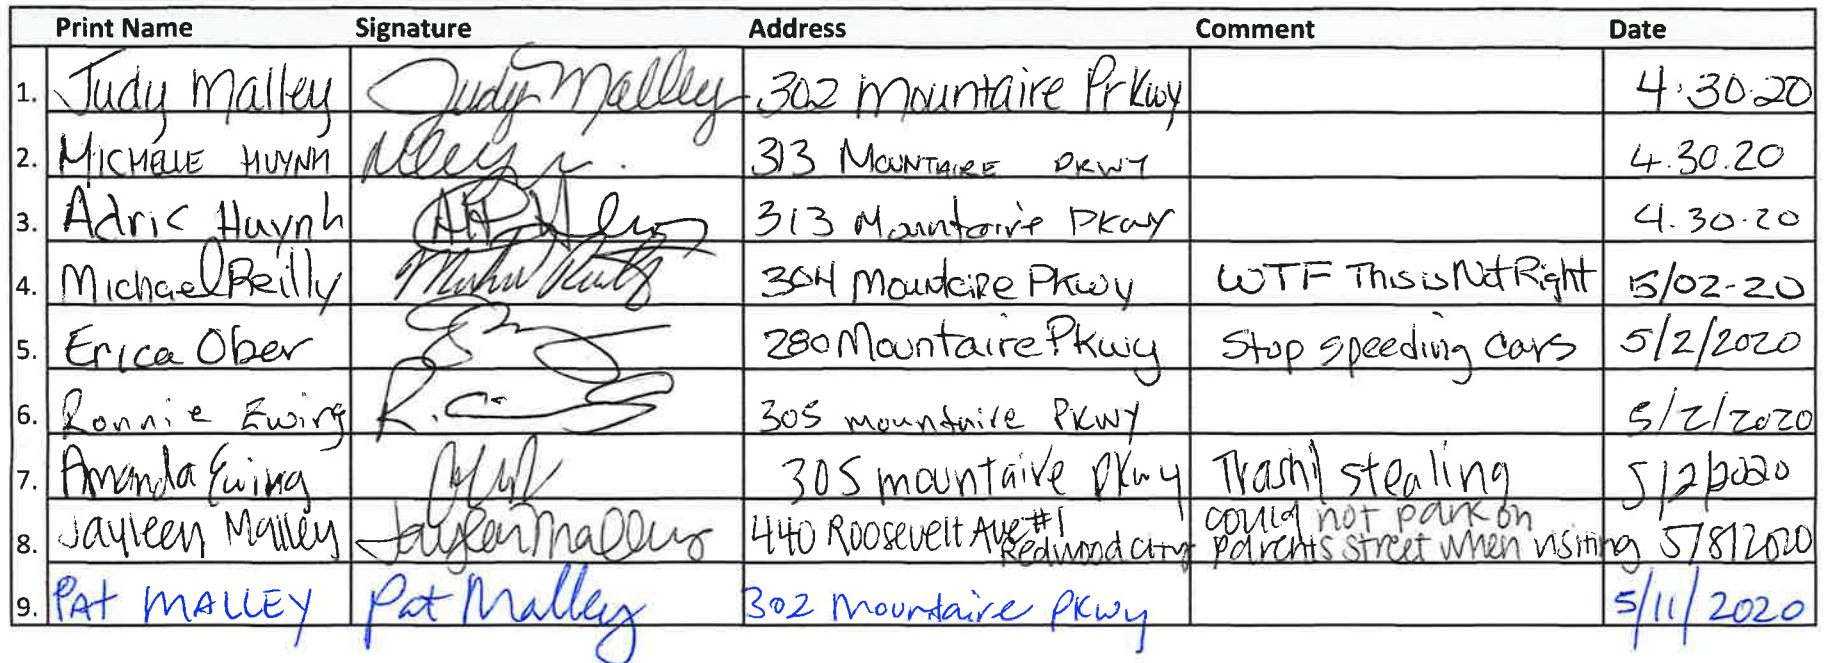 Print Name Signature Address Comment Date
1. Judy Malley Judy Malley 302 Mountaire Prkwy 4.30.20
2. MICHELLE HUYNH 313 MOUNTAIRE PKWY 4.30.20
3. Adric Huynh 313 Mountaire Pkwy 4.30.20
4. Michael Reilly 304 Mountaire Pkwy WTF This is Not Right 5/02-20
5. Erica Ober 280 Mountaire Pkwy Stop speeding cars 5/2/2020
6. Ronnie Ewing 305 mountaire PKWY 5/2/2020
7. Amanda Ewing 305 mountaire Pkwy Trash/stealing 5/2/2020
8. Jayleen Malley Jayleen Malley 440 Roosevelt Ave #1 could not park on
Redwood City parents street when visiting 5/8/2020
9. PAT MALLEY Pat Malley 302 Mountaire Pkwy 5/11/2020